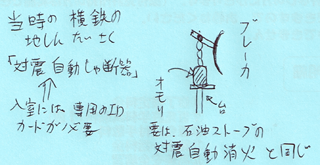 当時の 横鉄の
地しんたいさく
「対震自動しゃ断器」
入室には 専用のID
カードが必要
ブレーカ
オモリ
台
要は、石油ストーブの
対震自動消火 と同じ